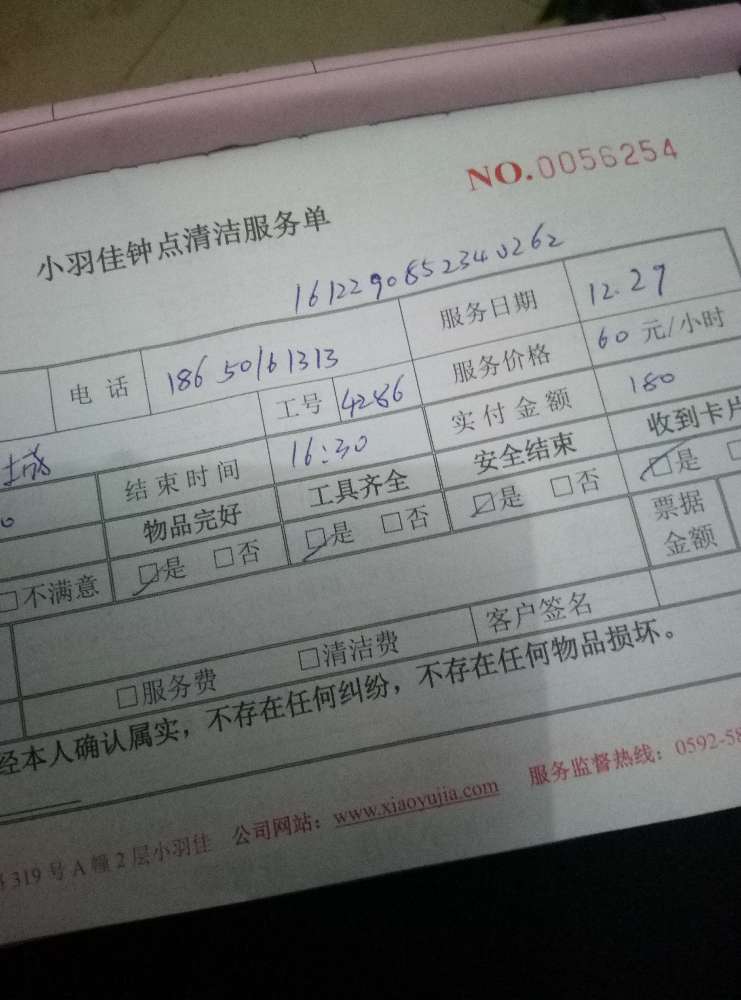 NO.0056254
小羽佳钟点清洁服务单
1612290852340262
电话 18650161313 服务日期 12.27
工号 4286 服务价格 60元/小时
城 结束时间 16:30 实付金额 180
物品完好 工具齐全 安全结束 收到卡片
□不满意 ☑是 □否 ☑是 □否 ☑是 □否 ☑是
票据金额
□服务费 □清洁费 客户签名
经本人确认属实，不存在任何纠纷，不存在任何物品损坏。
319号A幢2层小羽佳 公司网站：www.xiaoyujia.com 服务监督热线：0592-58